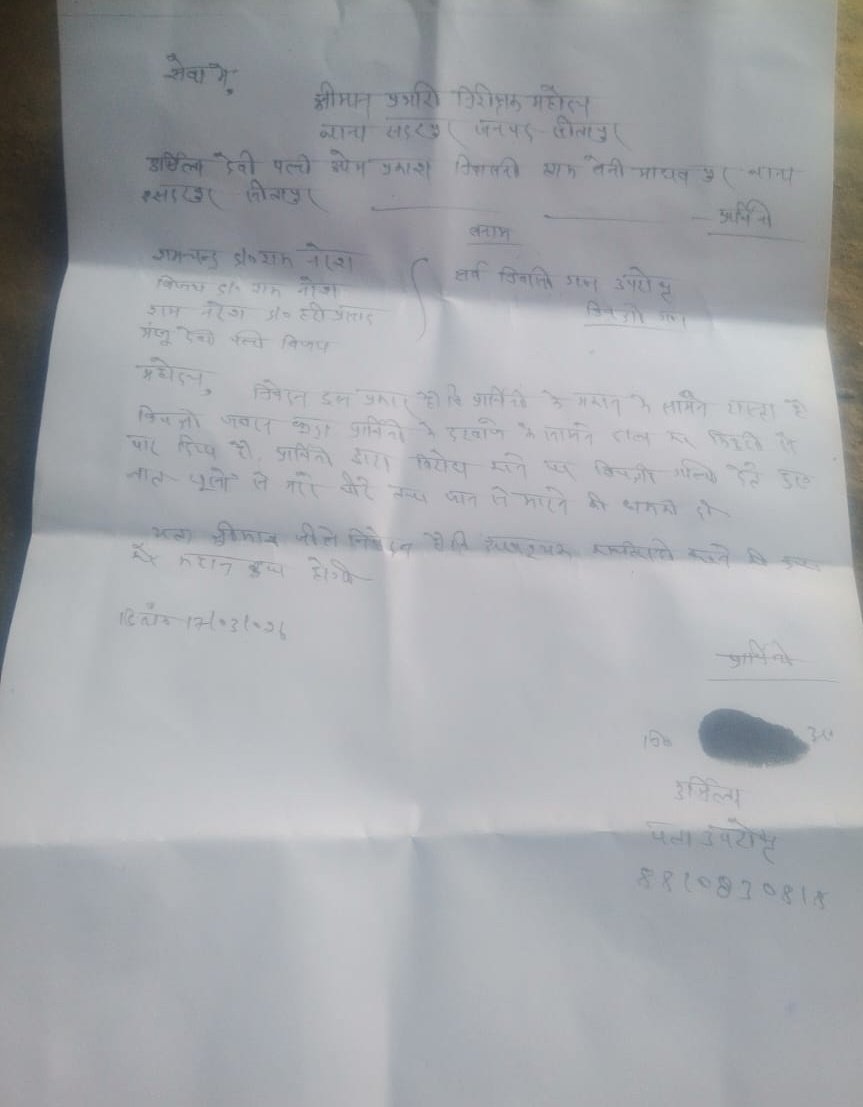 सेवा में,
श्रीमान प्रभारी निरीक्षक महोदय
थाना सदरपुर जनपद सीतापुर
उर्मिला देवी पत्नी प्रकाश निवासनी ग्राम बेनी माधव पुर थाना
सदरपुर सीतापुर प्रार्थिनी
बनाम
रामचन्द्र s/o राम नरेश
विजय s/o राम नरेश
राम नरेश s/o हरी प्रसाद
मंजू देवी पत्नी विजय
सर्व निवासी गण उपरोक्त
विपक्षी गण
महोदय,
निवेदन इस प्रकार है कि प्रार्थिनी के मकान के सामने रास्ता है
विपक्षी जबरन कूड़ा प्रार्थिनी के दरवाजे के सामने डाल कर से
पाट दिया है, प्रार्थिनी द्वारा विरोध करने पर विपक्षी गालियां देते हुए
लात घूसों से मारे पीटे तथा जान से मारने की धमकी दी
अतः श्रीमान जी से निवेदन है कि कार्यवाही करने की कृपा
करें महान कृपा होगी
दिनाँक 17/03/26
प्रार्थिनी
उर्मिला
पता उपरोक्त
8810830818